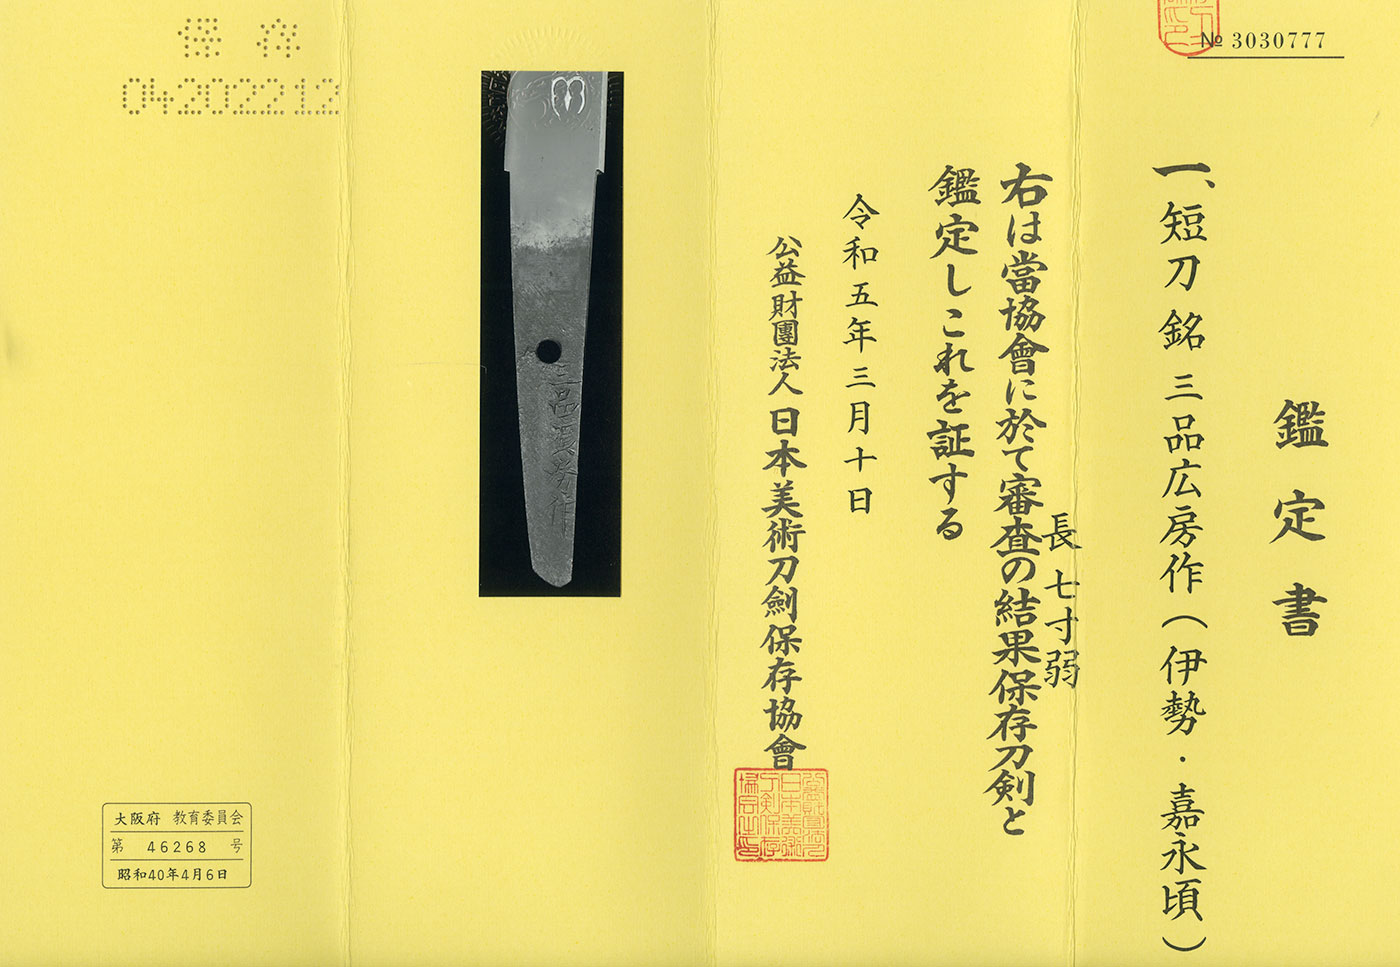 № 3030777
鑑定書
一、短刀 銘 三品広房作(伊勢・嘉永頃)
長 七寸弱
右は當協會に於て審査の結果保存刀剣と
鑑定しこれを証する
令和五年三月十日
公益財團法人 日本美術刀劍保存協會
三品廣房作
保存
04202212
大阪府 教育委員会
第 46268 号
昭和40年4月6日